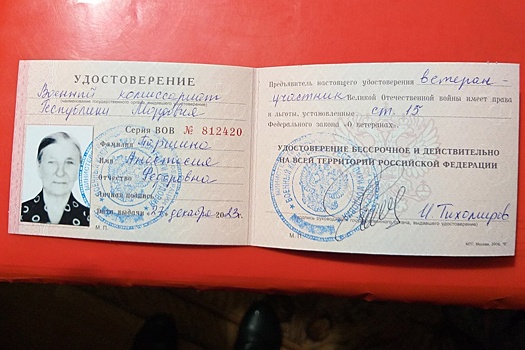 УДОСТОВЕРЕНИЕ
Военный комиссариат
(наименование государственного органа, выдавшего удостоверение)
Республики Мордовия
Серия ВОВ № 812420
Фамилия Паршина
Имя Анастасия
Отчество Федоровна
Личная подпись
Дата выдачи «27» декабря 2023г.
М.П.
Предъявитель настоящего удостоверения ветеран-
участник Великой Отечественной войны имеет права
и льготы, установленные ст. 15
Федерального закона «О ветеранах».
УДОСТОВЕРЕНИЕ БЕССРОЧНОЕ И ДЕЙСТВИТЕЛЬНО
НА ВСЕЙ ТЕРРИТОРИИ РОССИЙСКОЙ ФЕДЕРАЦИИ
И. Тихомиров
М.П.